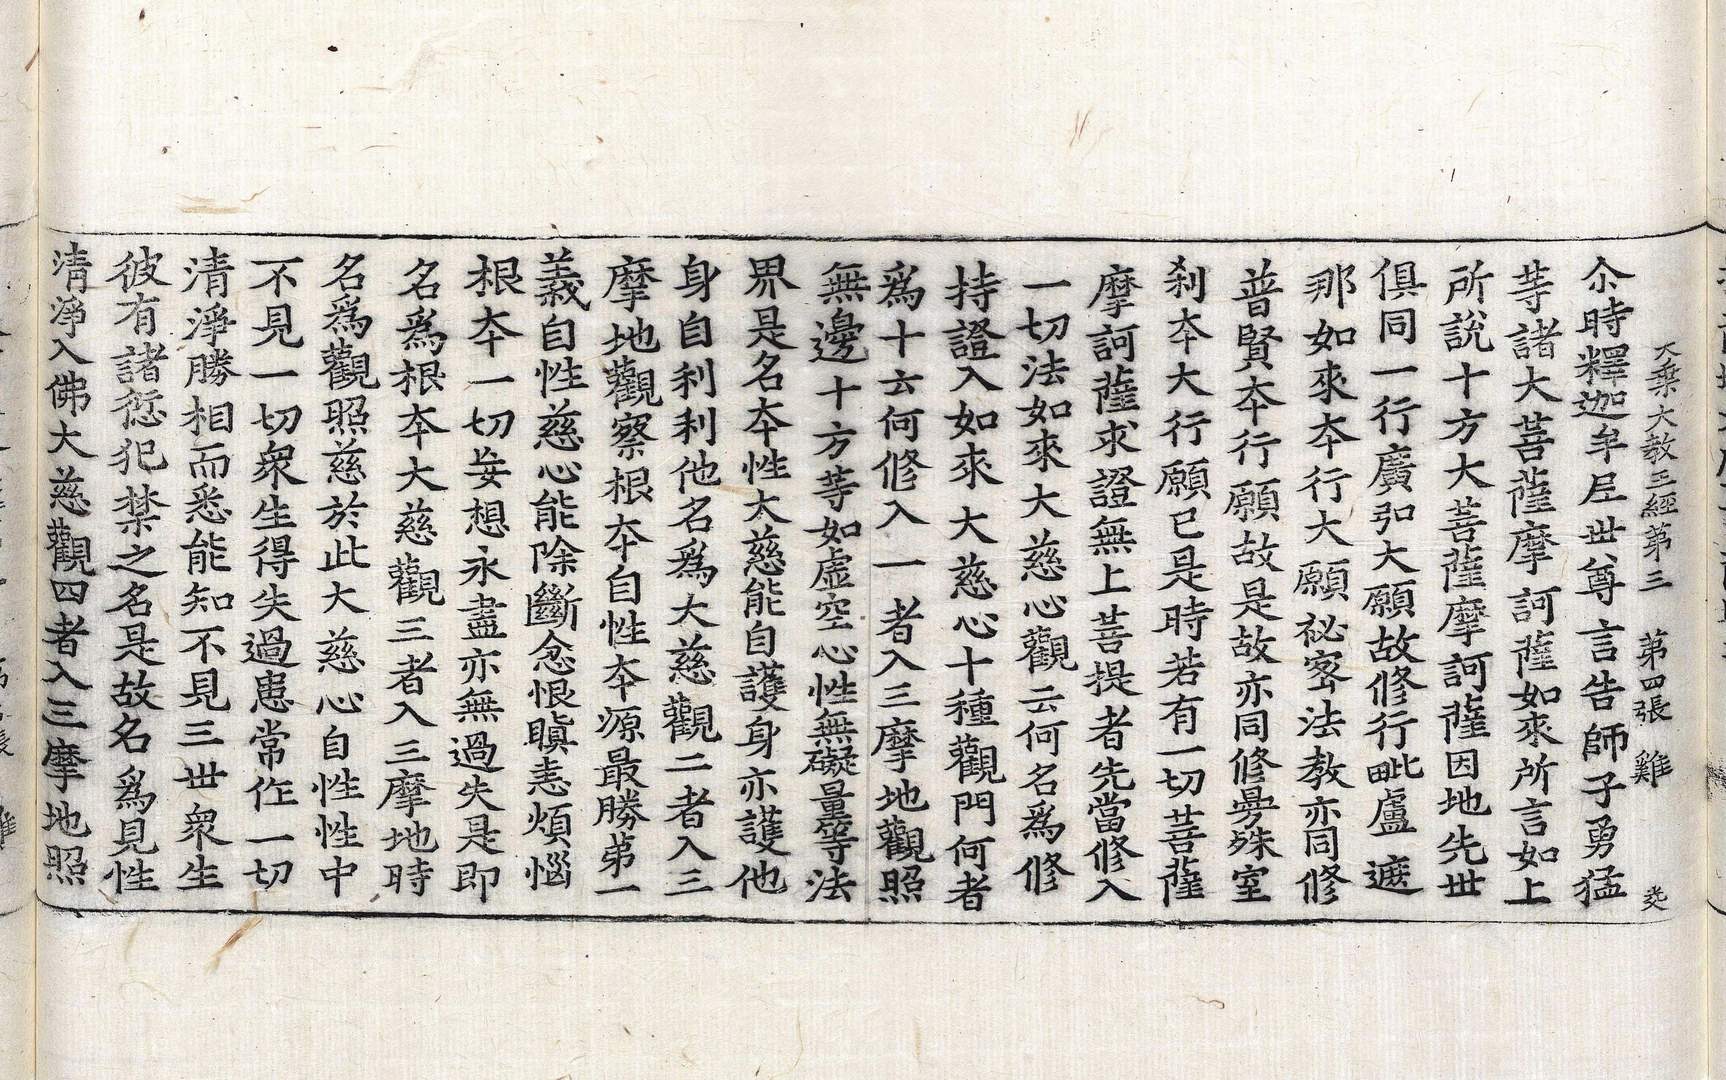 大乗大教王經第三 第四張 雞
尒時釋迦牟尼世尊言告師子勇猛
等諸大菩薩摩訶薩如來所言如上
所説十方大菩薩摩訶薩因地先世
俱同一行廣弘大願故修行毗盧遮
那如來夲行大願祕密法教亦同修
普賢夲行願故是故亦同修曼殊室
利夲大行願已是時若有一切菩薩
摩訶薩求證無上菩提者先當修入
一切法如來大慈心觀云何名為修
持證入如來大慈心十種觀門何者
為十云何修入一者入三摩地觀照
無邊十方等如虛空心性無礙量等法
界是名夲性大慈能自護身亦護他
身自利利他名爲大慈觀二者入三
摩地觀察根夲自性夲源最勝苐一
義自性慈心能除斷忿恨瞋恚煩惱
根夲一切妄想永盡亦無過失是即
名爲根夲大慈觀三者入三摩地時
名爲觀照慈於此大慈心自性性中
不見一切衆生得失過患常作一切
清淨勝相而悉能知不見三世衆生
彼有諸愆犯禁之名是故名爲見性
清淨入佛大慈觀四者入三摩地照